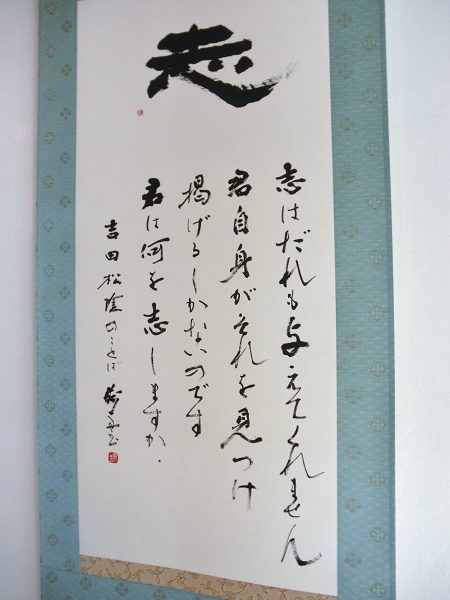 志
志はだれも与えてくれません
君自身がそれを見つけ
掲げるしかないのです
君は何を志しますか.
吉田松陰のことば